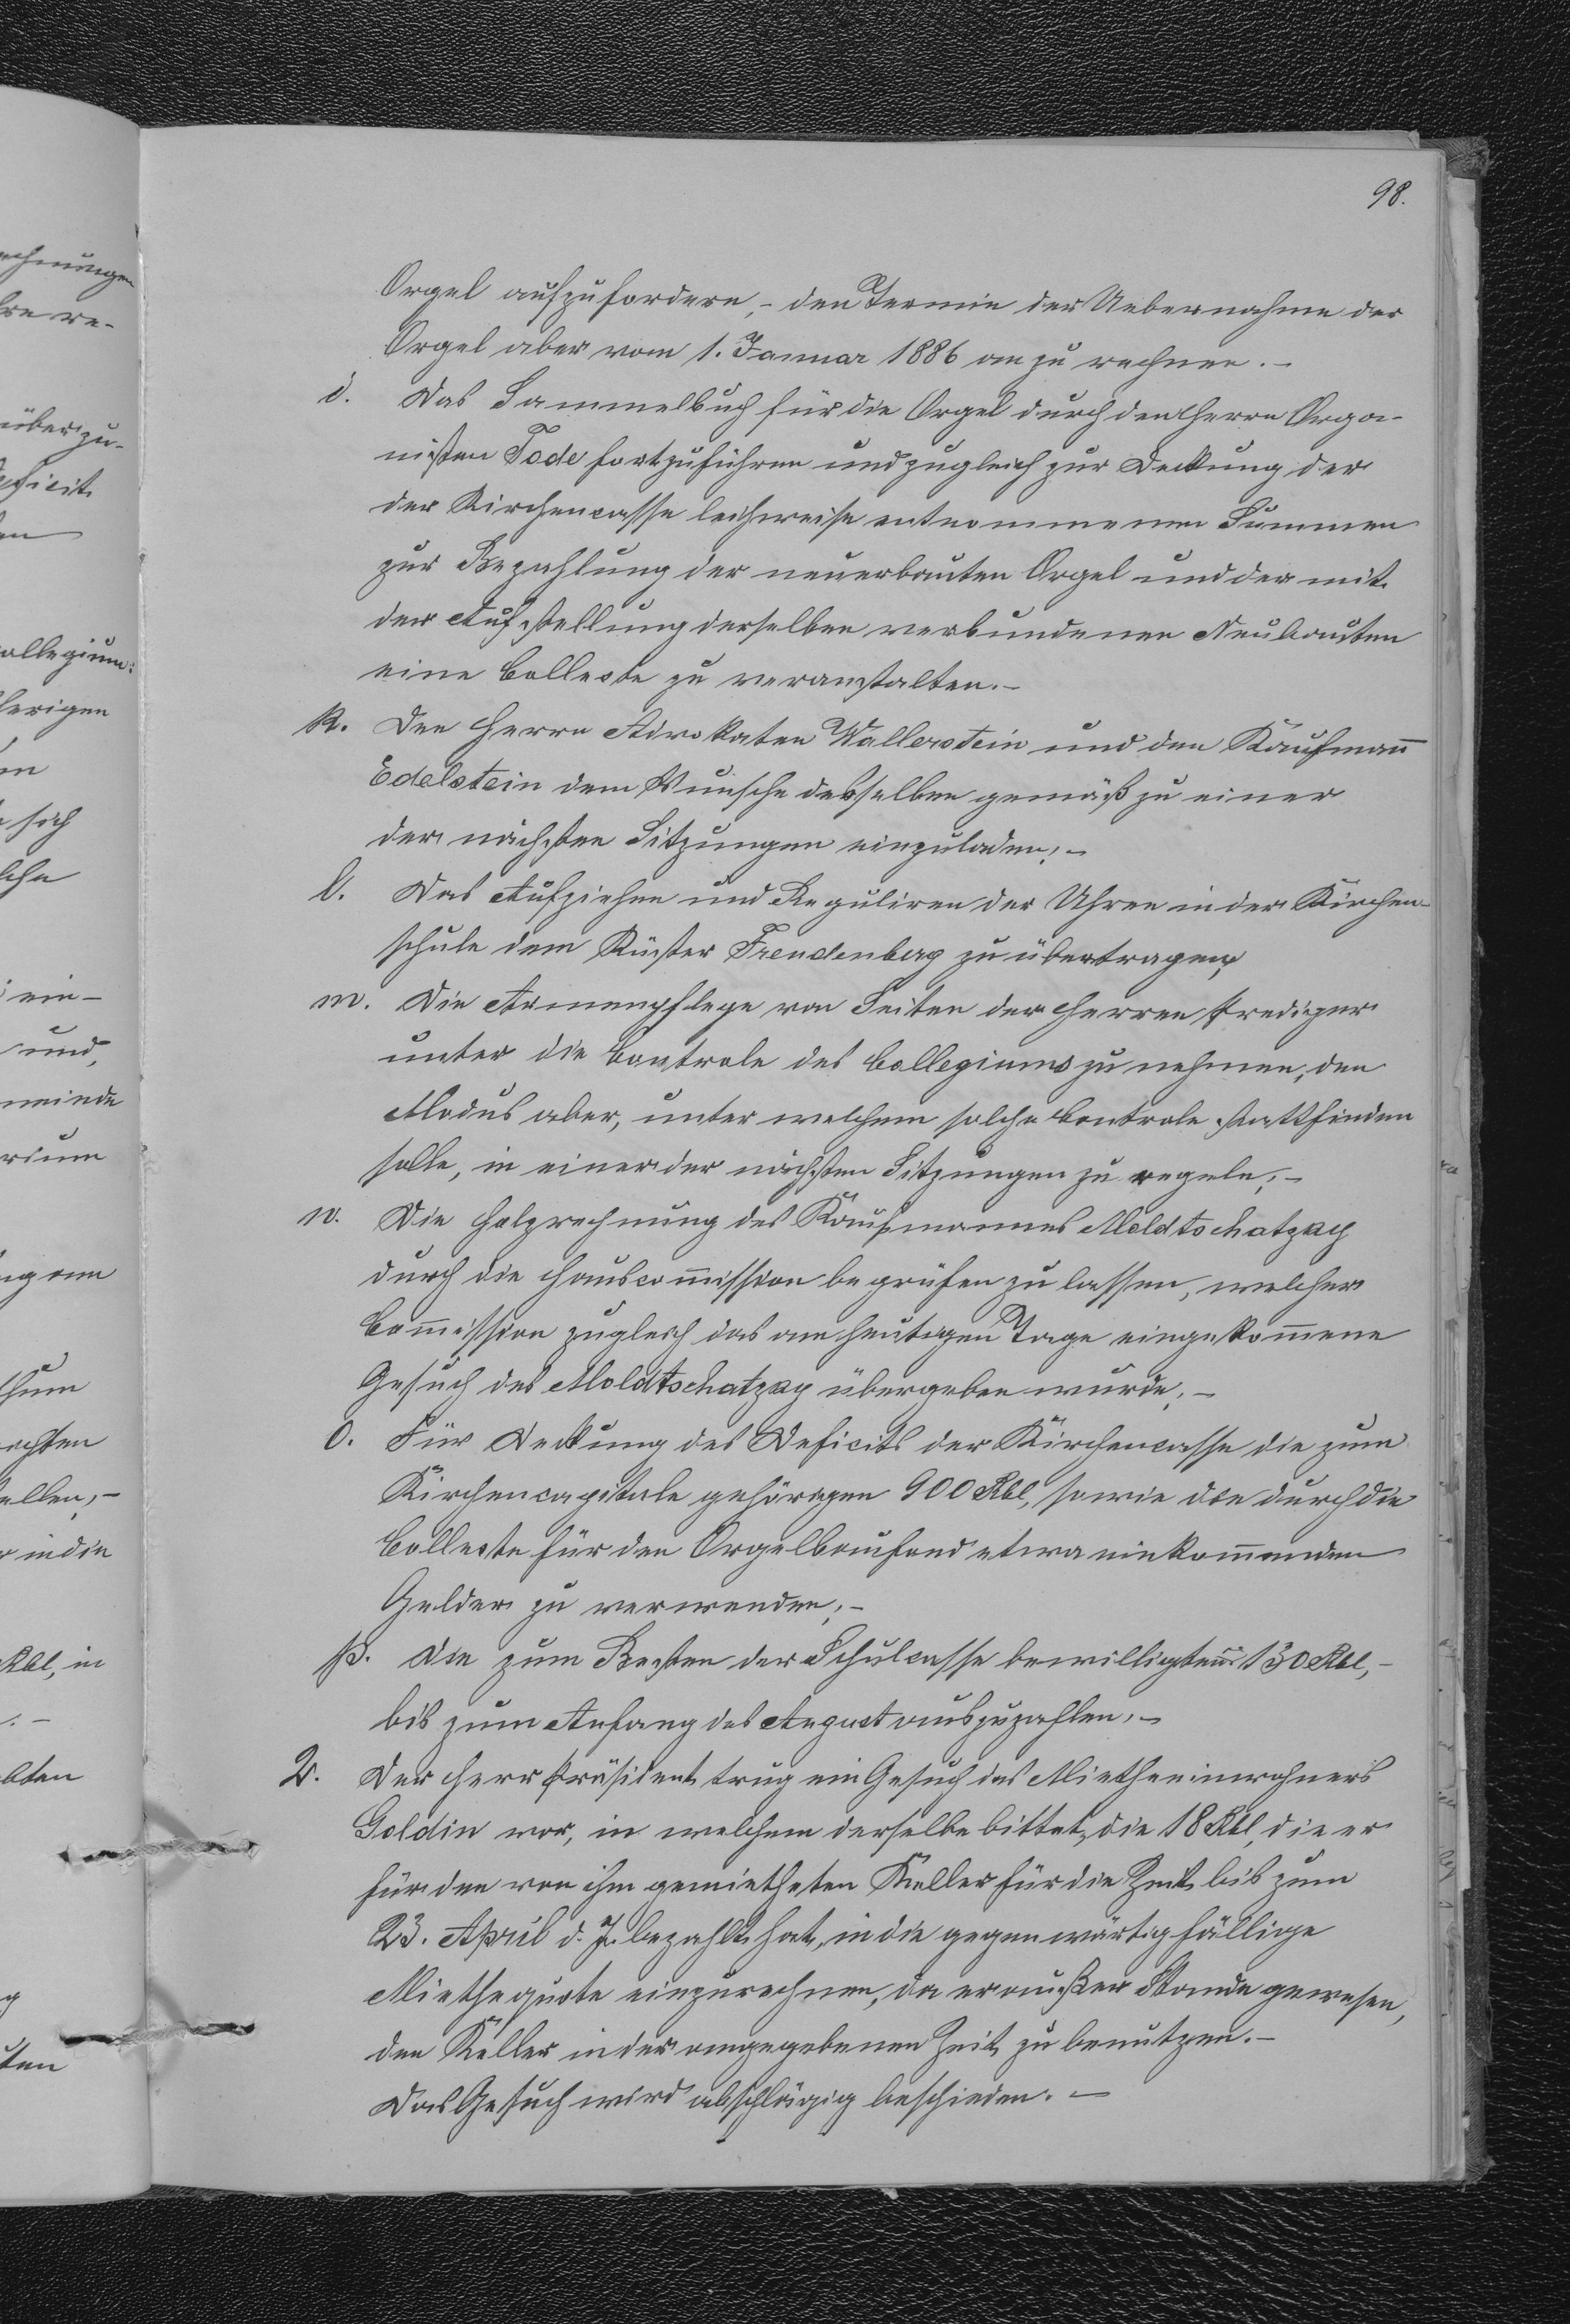 98.
Orgel aufzufordern, – den Termin der Uebernahme der
Orgel aber vom 1. Januar 1886 an zu rechnen. –
i. Das Sammelbuch für die Orgel durch den Herrn Orga-
nisten Tode fortzuführen und zugleich zur Deckung der
der Kirchencasse leihweise entnommenen Summen
zur Bezahlung der neuerbauten Orgel und der mit
der Aufstellung derselben verbundenen Neubauten
eine Collecte zu veranstalten. –
k. Den Herrn Advokaten Wallerstein und den Kaufmann
Edelstein dem Wunsche desselben gemäß zu einer
der nächsten Sitzungen einzuladen; –
l. Das Aufziehen und Reguliren der Uhren in der Kirchen-
schule dem Küster Freudenberg zu übertragen;
m. Die Armenpflege von Seiten der Herren Prediger
unter die Controle des Collegiums zu nehmen, den
Modus aber, unter welchem solche Controle stattfinden
solle, in einer der nächsten Sitzungen zu regeln; –
n. Die Holzrechnung des Kaufmannes Moldtschatzky
durch die Hauscommission beprüfen zu lassen, welcher
Commission zugleich das am heutigen Tage eingekommene
Gesuch des Moldtschatzky übergeben wurde; –
o. Für Deckung des Deficits der Kirchencasse die zum
Kirchencapitale gehörigen 900 Rbl, sowie die durch die
Collecte für den Orgelbaufond etwa einkommenden
Gelder zu verwenden; –
p. Die zum Besten der Schulcasse bewilligten 130 Rbl, –
bis zum Anfang des August auszuzahlen. –
2. Der Herr Präsident trug ein Gesuch des Mietheinwohners
Goldin vor, in welchem derselbe bittet, die 18 Rbl, die er
für den von ihm gemietheten Keller für die Zeit bis zum
23. April d. J. bezahlt hat, in die gegenwärtig fällige
Miethequote einzurechnen, da er außer Stande gewesen,
den Keller in der angegebenen Zeit zu benutzen. –
Das Gesuch wird abschlägig beschieden. –